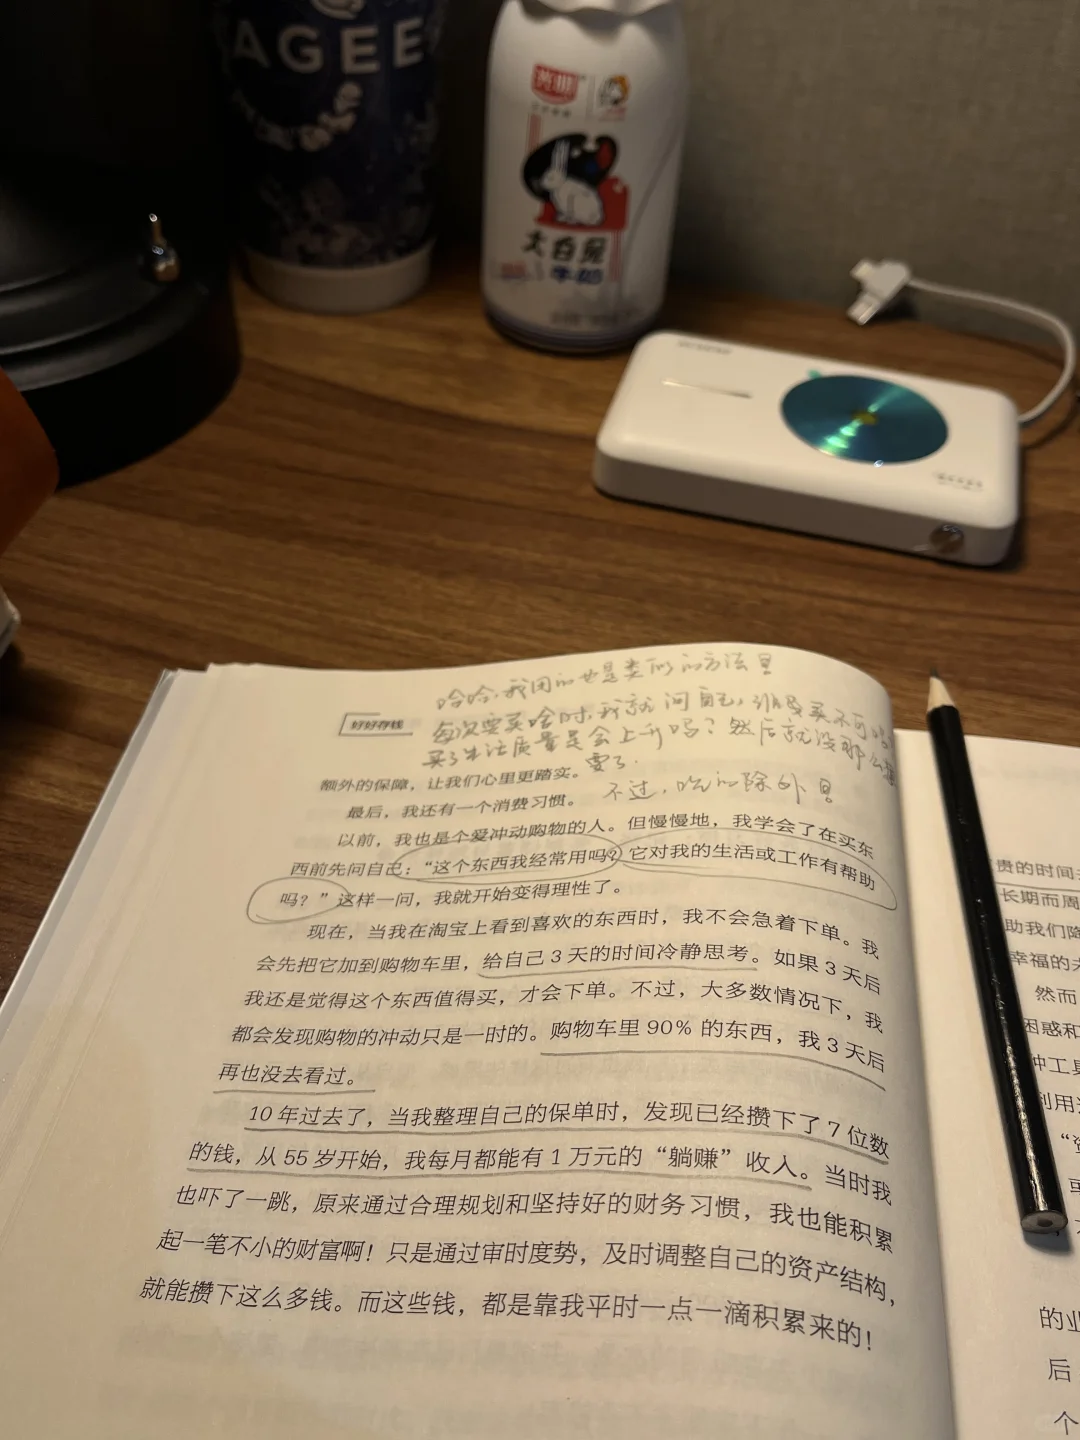 AGEE
光明
大白兔
牛奶
哈哈，我用的也是类似的方法
每次要买啥时，我就问自己，非要买不可吗
买了生活质量是会上升吗？然后就没那么想
要了.
不过，吃的除外
好好存钱
额外的保障，让我们心里更踏实。
最后，我还有一个消费习惯。
以前，我也是个爱冲动购物的人。但慢慢地，我学会了在买东
西前先问自己：“这个东西我经常用吗？它对我的生活或工作有帮助
吗？”这样一问，我就开始变得理性了。
现在，当我在淘宝上看到喜欢的东西时，我不会急着下单。我
会先把它加到购物车里，给自己 3 天的时间冷静思考。如果 3 天后
我还是觉得这个东西值得买，才会下单。不过，大多数情况下，我
都会发现购物的冲动只是一时的。购物车里 90% 的东西，我 3 天后
再也没去看过。
10 年过去了，当我整理自己的保单时，发现已经攒下了 7 位数
的钱，从 55 岁开始，我每月都能有 1 万元的“躺赚”收入。当时我
也吓了一跳，原来通过合理规划和坚持好的财务习惯，我也能积累
起一笔不小的财富啊！只是通过审时度势，及时调整自己的资产结构，
就能攒下这么多钱。而这些钱，都是靠我平时一点一滴积累来的！
贵的时间
长期而周
助我们降
幸福的
然而
困惑和
种工具
利用
“资
的业
后
个